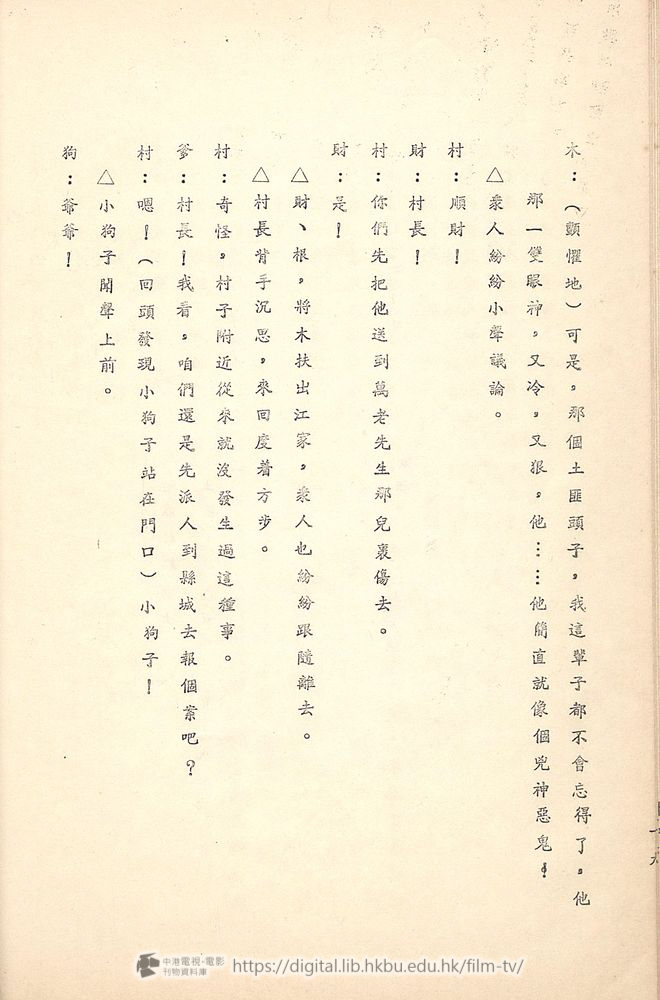 木：（顫懼地）可是，那個土匪頭子，我這輩子都不會忘得了，他
那一雙眼神，又冷，又狠，他……他簡直就像個兇神惡鬼！
△眾人紛紛小聲議論。
村：順財！
財：村長！
村：你們先把他送到萬老先生那兒裹傷去。
財：是！
△財、根，將木扶出江家，眾人也紛紛跟隨離去。
△村長背手沉思，來回度着方步。
村：奇怪，村子附近從來就沒發生過這種事。
爹：村長！我看，咱們還是先派人到縣城去報個案吧？
村：嗯！（回頭發現小狗子站在門口）小狗子！
△小狗子聞聲上前。
狗：爺爺！
中港電視・電影
刊物資料庫
https://digital.lib.hkbu.edu.hk/film-tv/